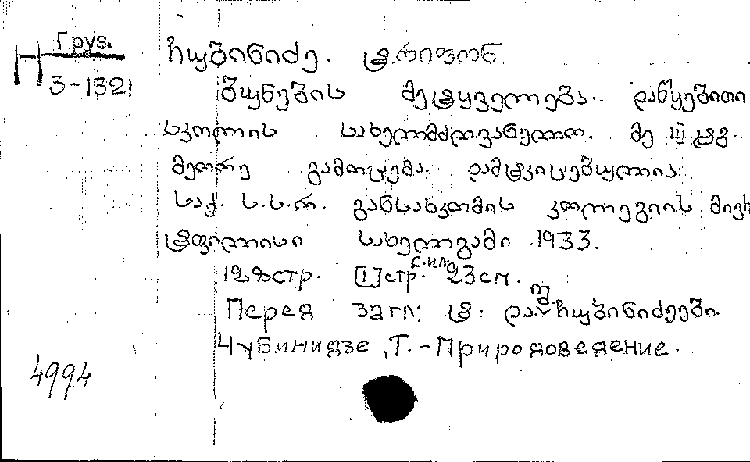 Груз.
Н 3-1321
ჩუბინიძე. ტრიფონ
ბუნების მეტყველება. დაწყებითი
სკოლის სახელმძღვანელო. მე III ჯგ.
მეორე გამოცემა. დამტკიცებულია
საქ. ს.ს.რ. განსახკომის კოლეგიის მიერ
ტფილისი სახელგამი 1933.
128 стр. [1] стр. с илл. 23 см.
Перед загл: ტ. და უ. ჩუბინიძეები.
Чубинидзе, Т. - Природоведение.
4994